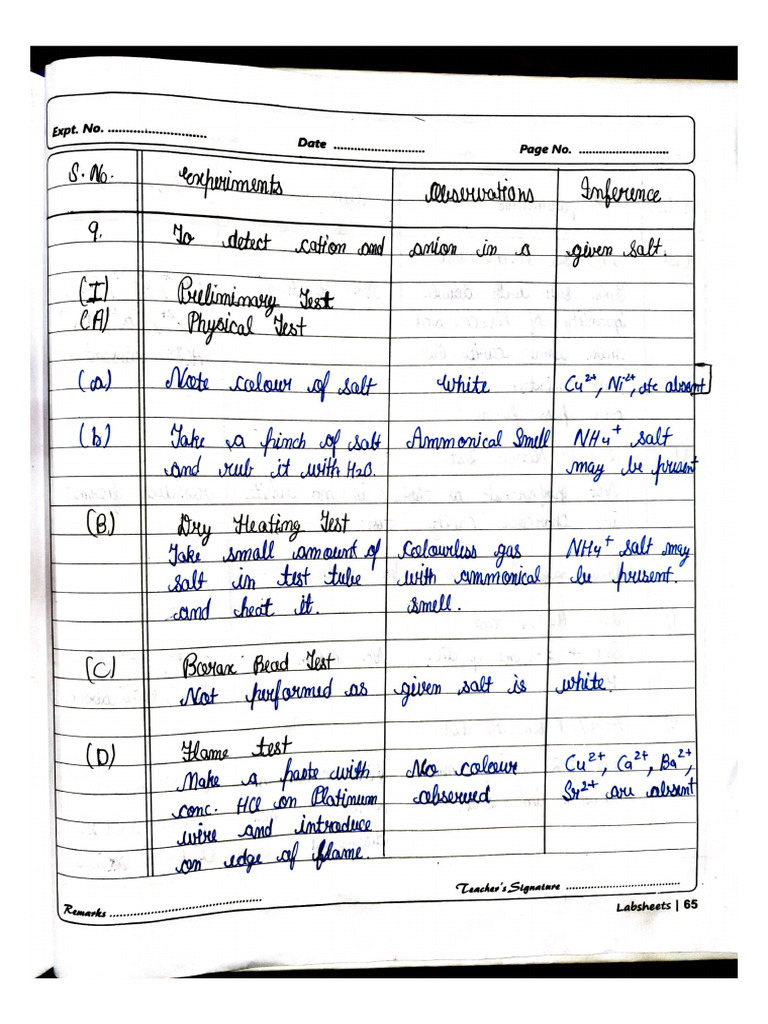 Expt. No. ............................
Date ..........................
Page No. ..........................
S.No. Experiments Observations Inference
9. To detect cation and anion in a given salt.
(I) Preliminary Test
(A) Physical Test
(a) Note colour of salt White Cu²⁺, Ni²⁺, etc absent
(b) Take a pinch of salt Ammonical Smell NH₄⁺ salt
and rub it with H₂O. may be present
(B.) Dry Heating Test
Take small amount of colourless gas NH₄⁺ salt may
salt in test tube with ammonical be present.
and heat it. smell.
(C) Borax Bead Test
Not performed as given salt is white.
(D) Flame test
Make a paste with No colour Cu²⁺, Ca²⁺, Ba²⁺,
conc. HCl on Platinum observed Sr²⁺ are absent
wire and introduce
on edge of flame.
Teacher's Signature ................................
Remarks ..........................................
Labsheets | 65